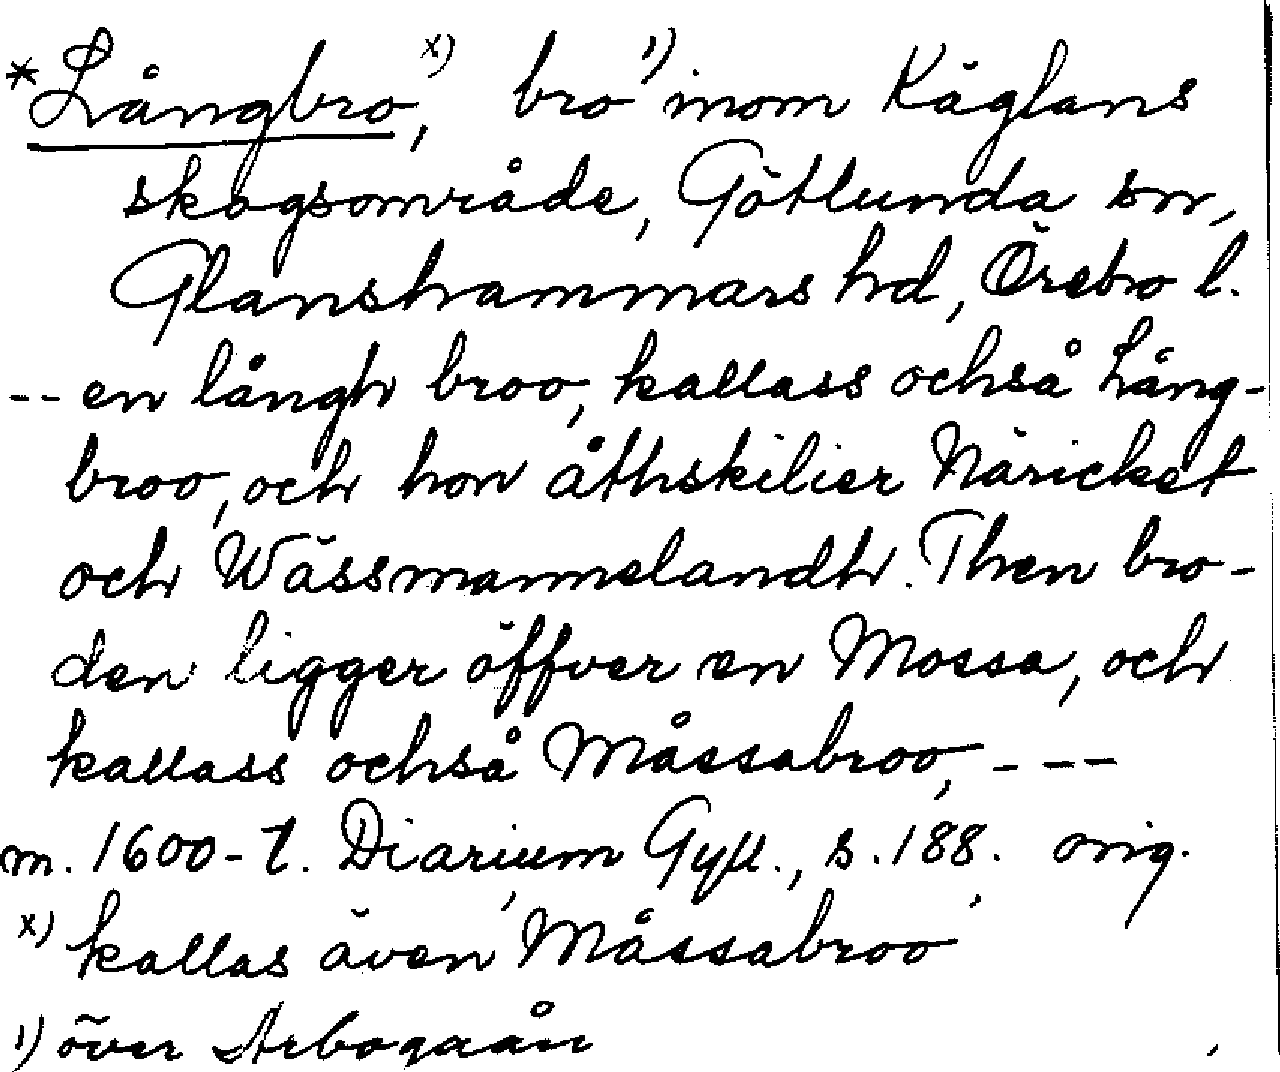 * Långbro,x) bro1) inom Käglans
skogsområde, Götlunda sn,
Glanshammars hd, Örebro l.
-- en långh broo, kallass ochså Lång-
broo, och hon åthskilier Näricket
och Wässmannelandh. Then bro-
den ligger öffver en Mossa, och
kallass ochså Måssabroo, ---
m. 1600-t. Diarium Gyll., s. 188. orig.
x) kallas även 'Måssabroo'
1) över Arbogaån